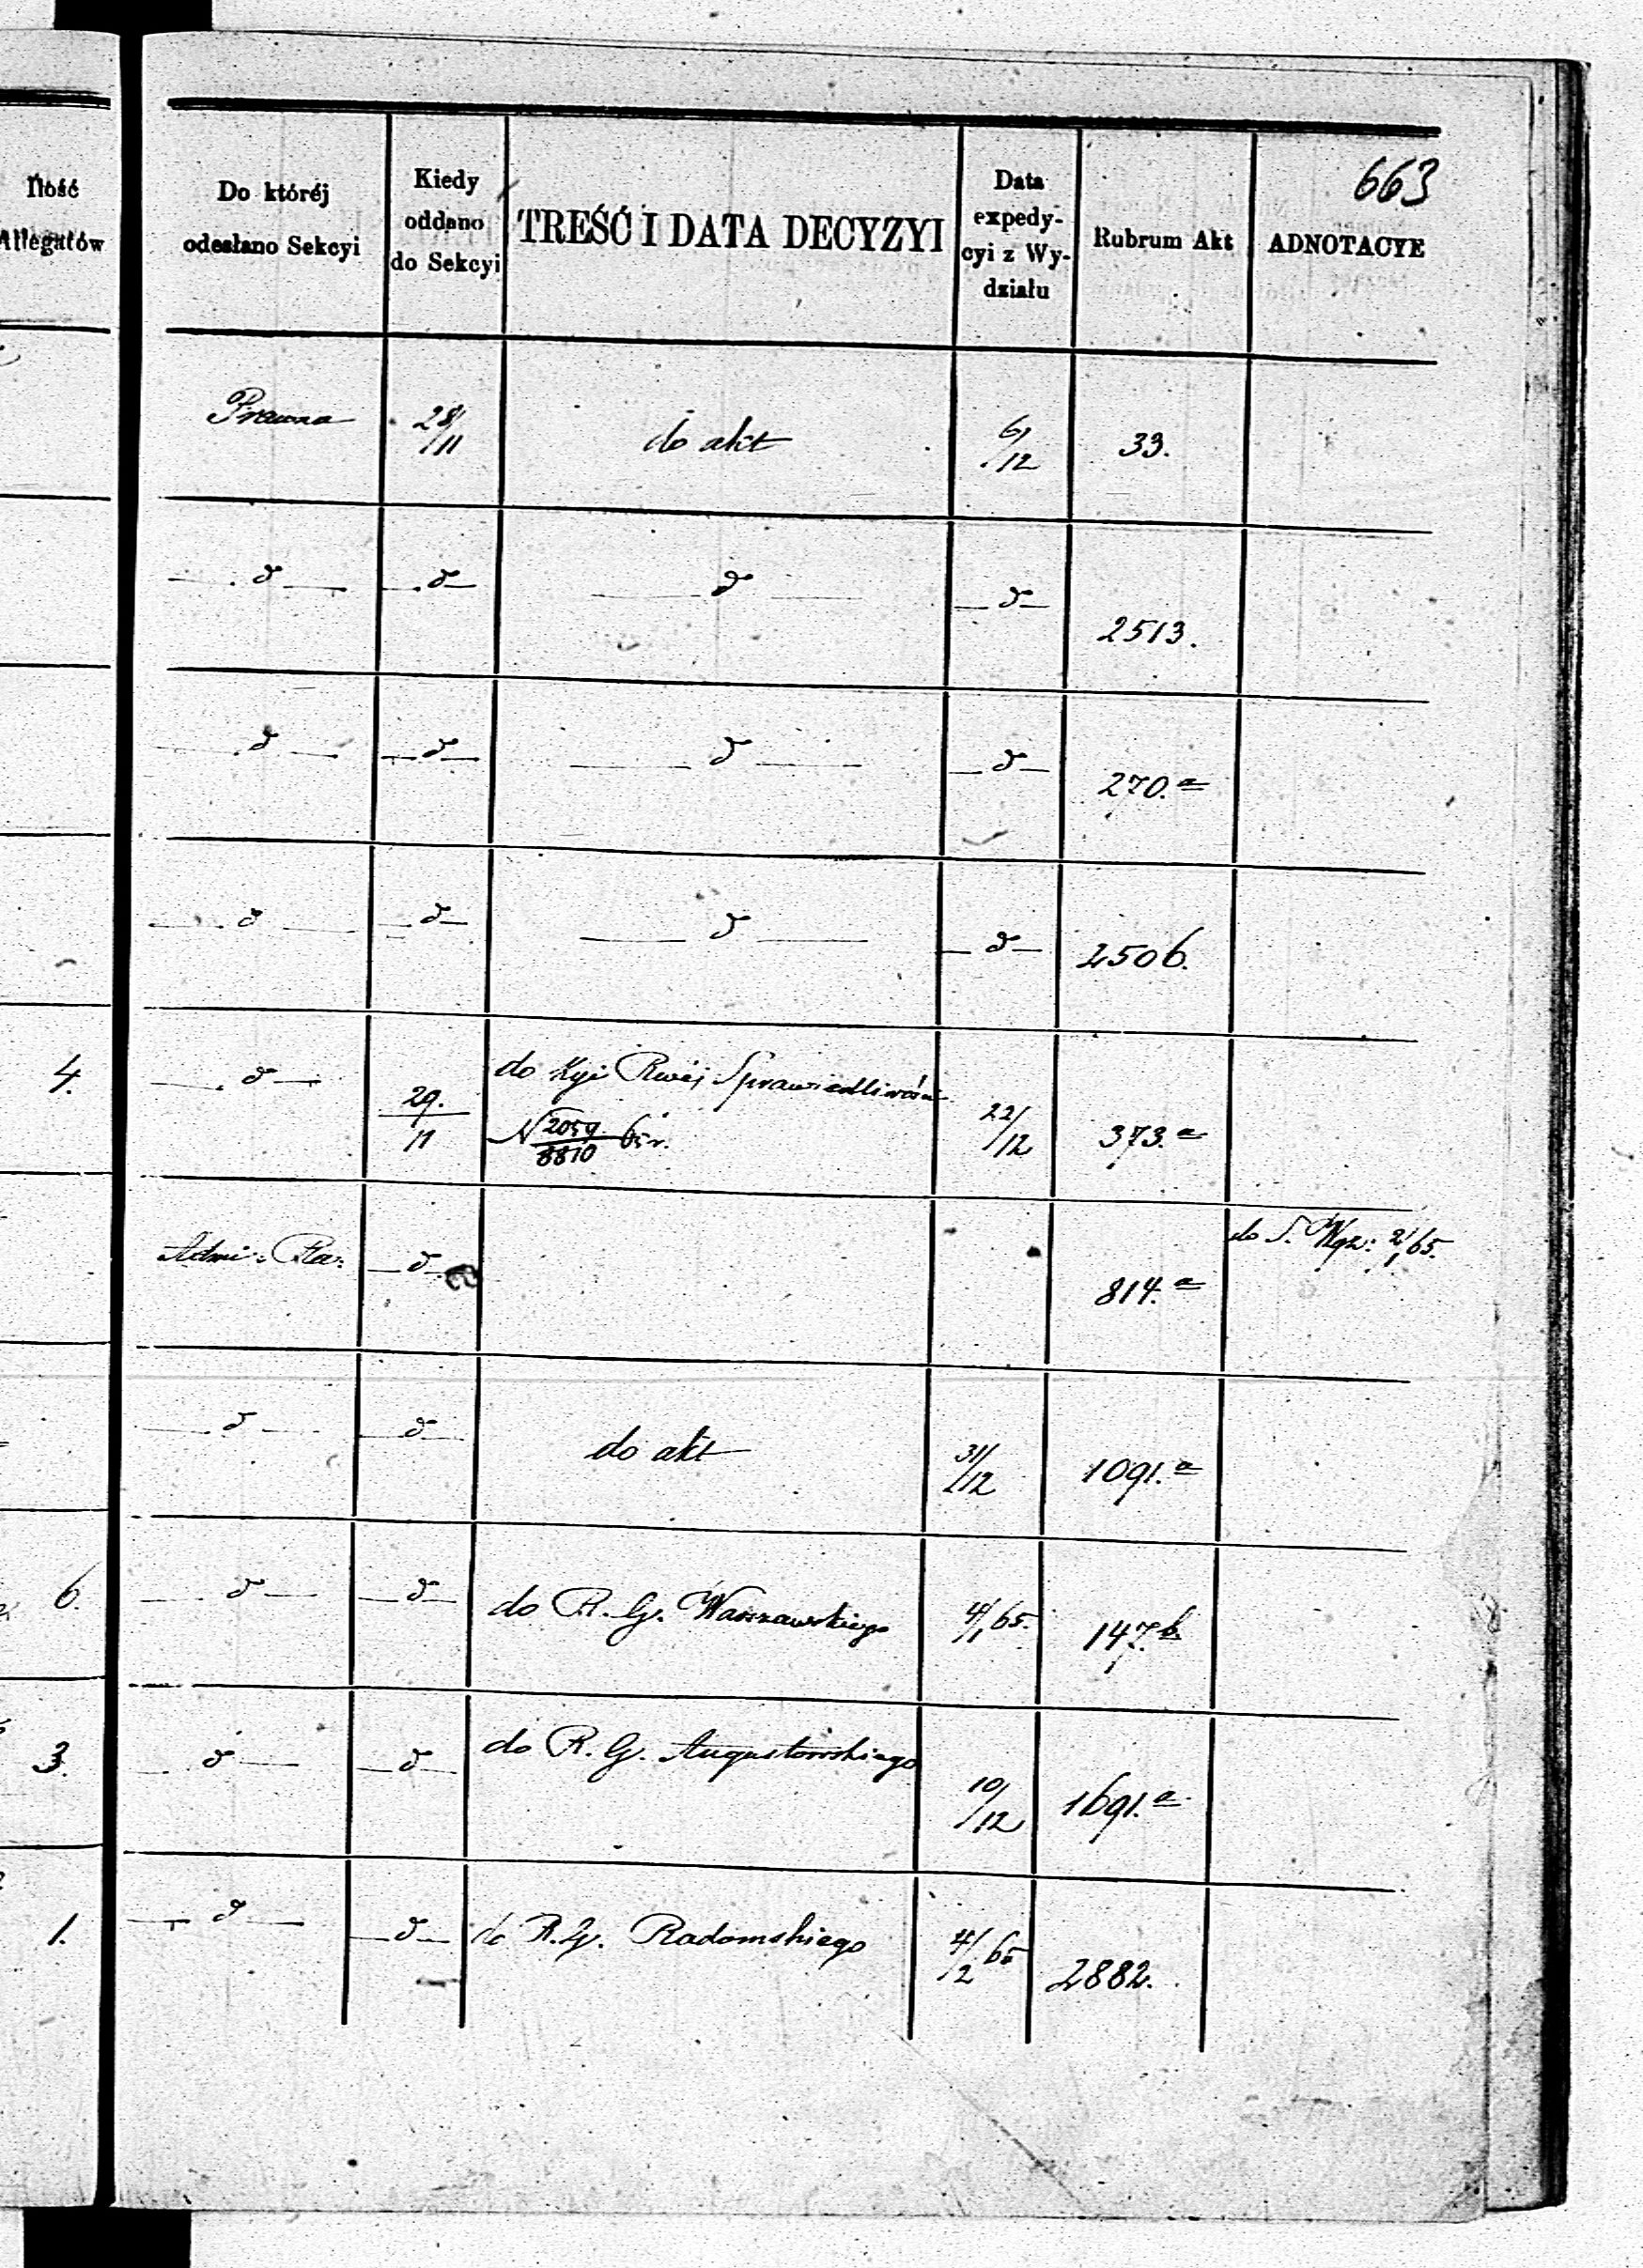 663
Ilość
Allegatów
Do któréj
odesłano Sekcyi
Kiedy
oddano
do Sekcyi
TREŚĆ I DATA DECYZYI
Data
expedy-
cyi z Wy-
działu
Rubrum Akt
ADNOTACYE
Prawna 28/11 do akt 6/12 33.
— d — — d — — d — — d — 2513.
— d — — d — — d — — d — 270.a
— d — — d — — d — — d — 2506.
4. — d — 29./11 do Kyi Rwéj Sprawiedliwości 22/12 373.a
N 2059/8810
Admi: — d — 814.a do S. 2/1 65.
— d — — d — do akt 31/12 1091.a
6. — d — — d — do R. G. Warszawskiego 4/1 65. 147.b
3. — d — — d — do R. G. Augustowskiego 10/12 1691.a
1. — d — — d — do R. G. Radomskiego 4/2 65 2882.